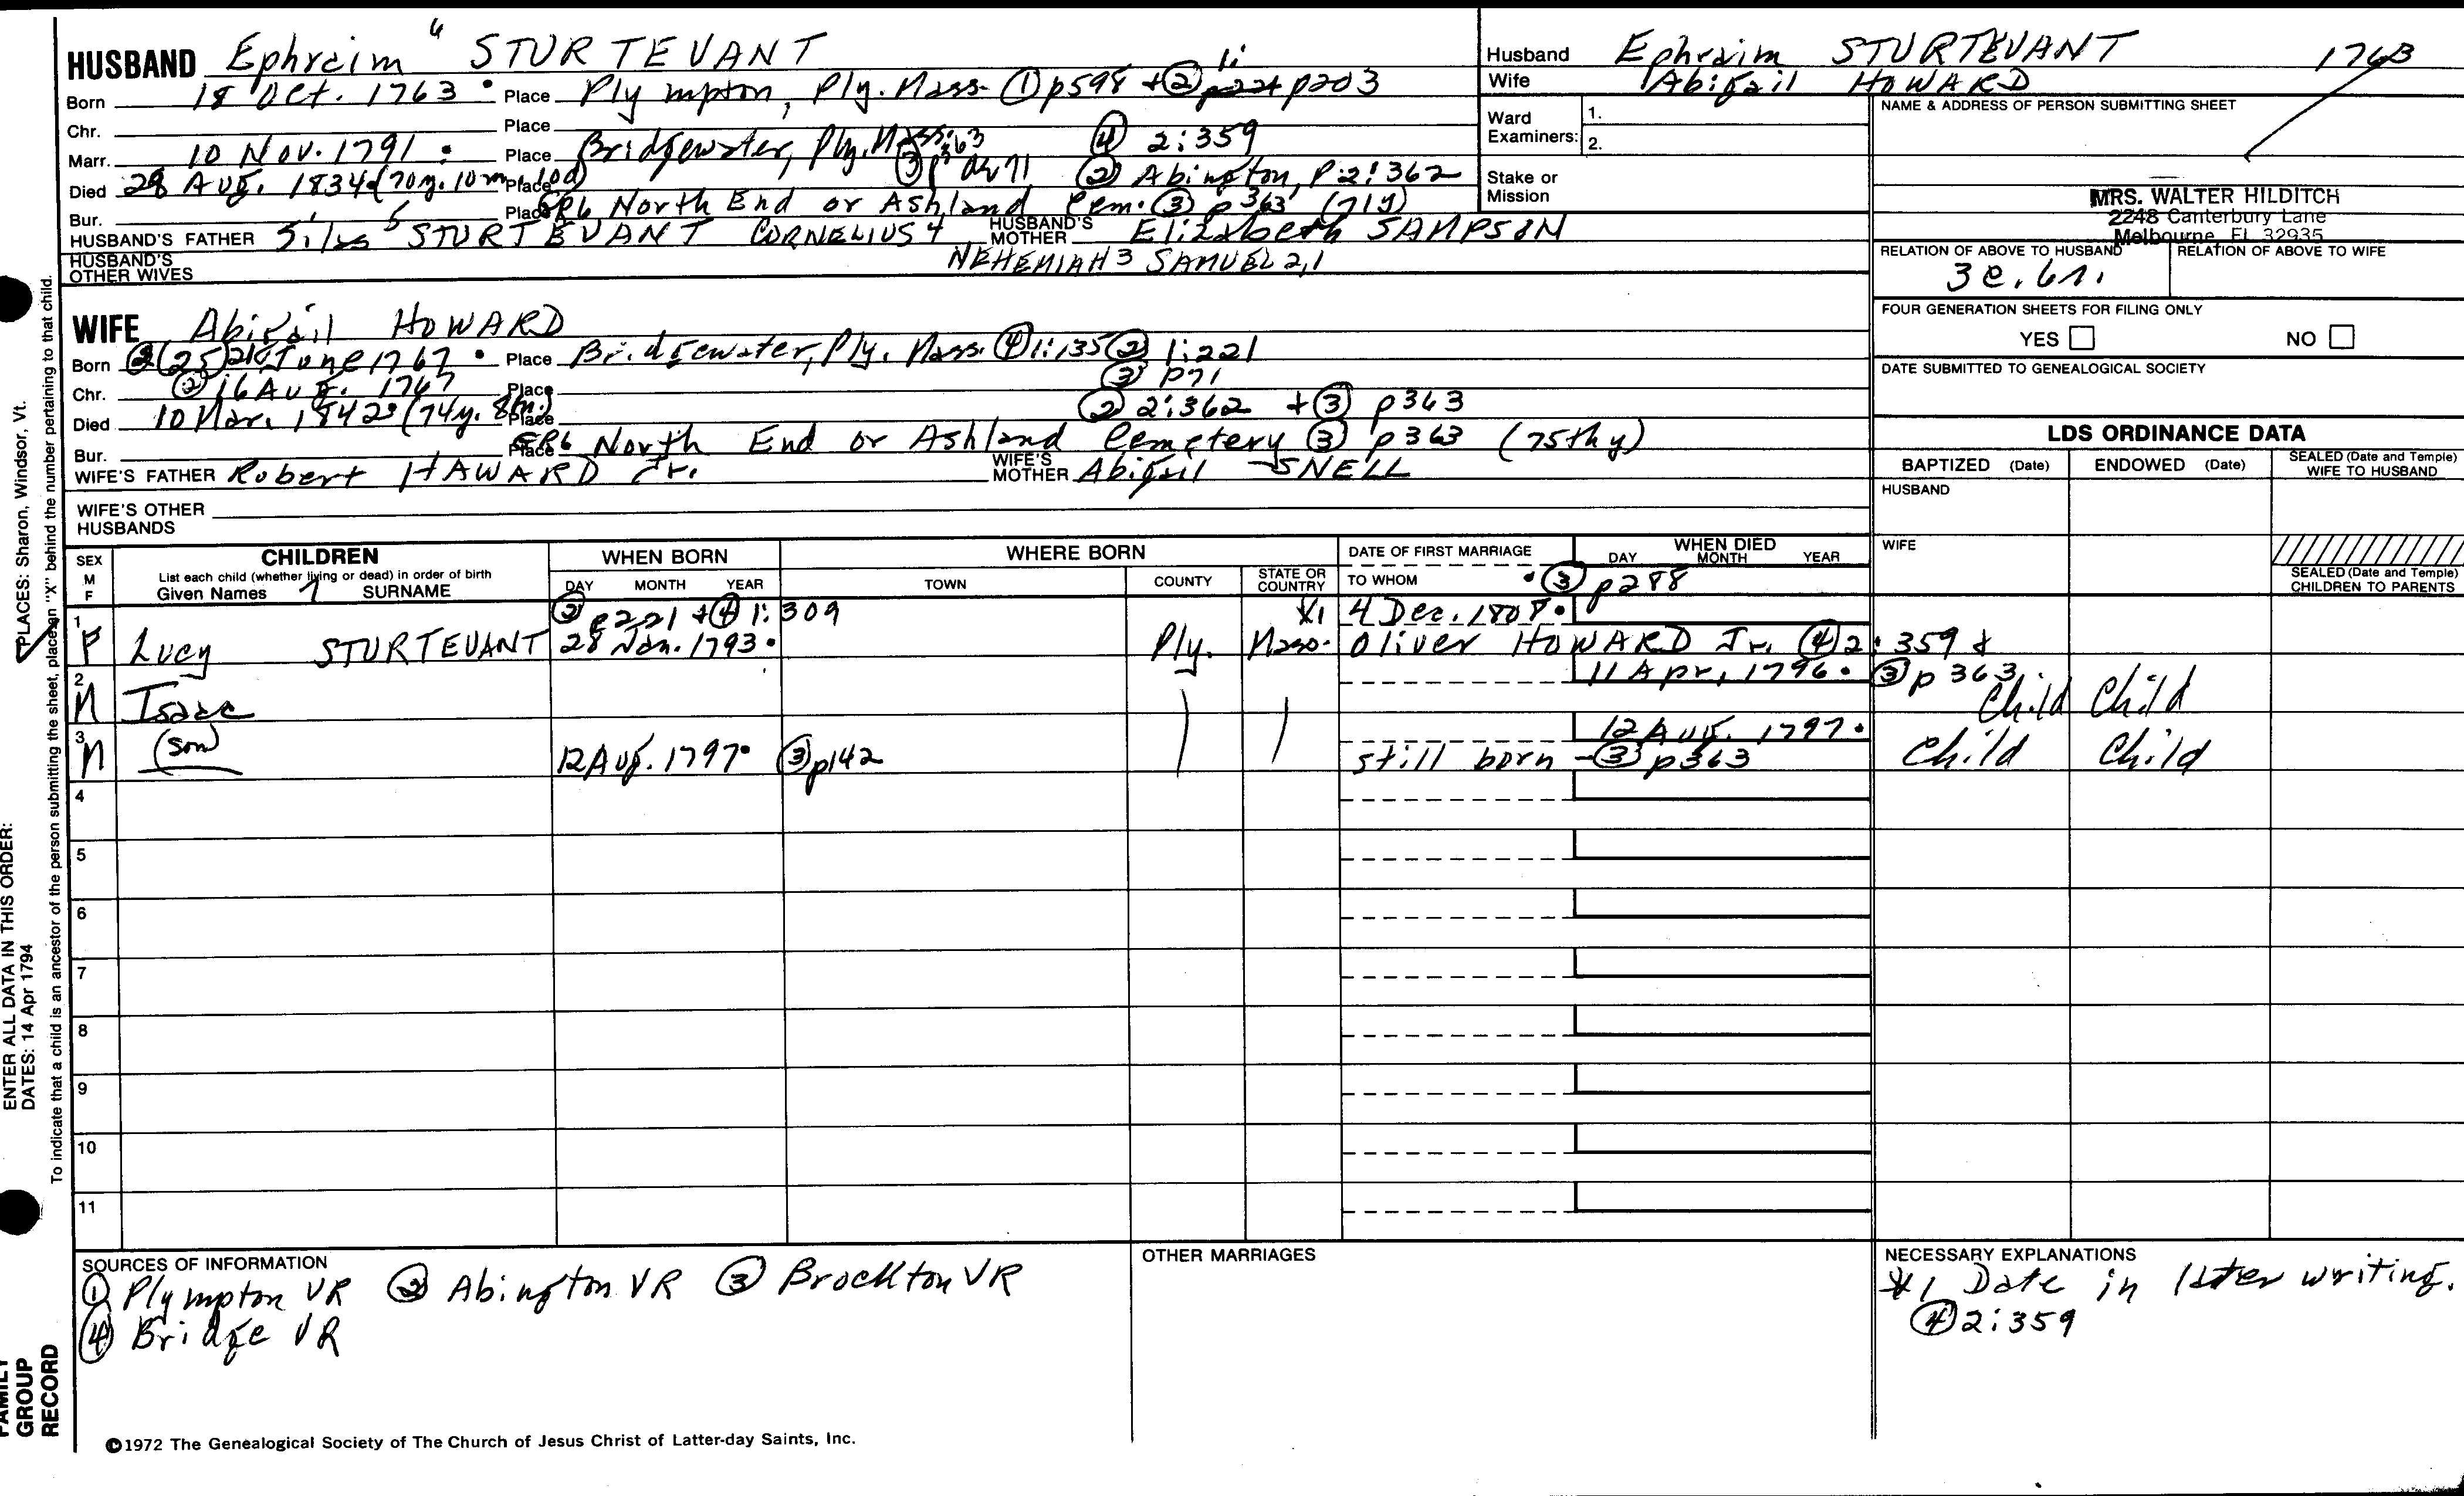 HUSBAND Ephraim 6 STURTEVANT
Born 18 Oct. 1763 • Place Plympton, Ply. Mass. ① p598 + ② 1: p203
Chr. Place
Marr. 10 Nov. 1791 • Place Bridgewater, Ply. Mass. ④ 2:359
Died 28 Aug. 1834 (70y. 10m. 10d) Place ③ p363 ② Abington, P. 2:362
Bur. Place GR6 North End or Ashland Cem. ③ p363 (71y)
HUSBAND'S FATHER Silas 5 STURTEVANT CORNELIUS 4 HUSBAND'S MOTHER Elizabeth SAMPSON
HUSBAND'S OTHER WIVES NEHEMIAH 3 SAMUEL 2,1
WIFE Abigail HOWARD
Born ② (25) 24 June 1767 • Place Bridgewater, Ply. Mass. ④ 1:135 ② 1:221
Chr. ② 16 Aug. 1767 Place ③ p71
Died 10 Mar. 1842 • (74y. 8m.) Place ② 2:362 + ③ p363
Bur. Place GR6 North End or Ashland Cemetery ③ p363 (75th y)
WIFE'S FATHER Robert HAWARD Jr. WIFE'S MOTHER Abigail SNELL
WIFE'S OTHER HUSBANDS
Husband Ephraim STURTEVANT 1763
Wife Abigail HOWARD
Ward Examiners: 1.
2.
Stake or Mission
NAME & ADDRESS OF PERSON SUBMITTING SHEET
MRS. WALTER HILDITCH
2248 Canterbury Lane
Melbourne, FL 32935
RELATION OF ABOVE TO HUSBAND RELATION OF ABOVE TO WIFE
3c. 6r.
FOUR GENERATION SHEETS FOR FILING ONLY
YES NO
DATE SUBMITTED TO GENEALOGICAL SOCIETY
LDS ORDINANCE DATA
BAPTIZED (Date) ENDOWED (Date) SEALED (Date and Temple) WIFE TO HUSBAND
HUSBAND
WIFE
SEALED (Date and Temple) CHILDREN TO PARENTS
SEX M F
CHILDREN
List each child (whether living or dead) in order of birth
Given Names 7 SURNAME
WHEN BORN
DAY MONTH YEAR
WHERE BORN
TOWN COUNTY STATE OR COUNTRY
DATE OF FIRST MARRIAGE
TO WHOM
WHEN DIED
DAY MONTH YEAR
• ③ p288
② p221 + ④ 1:309 *1 4 Dec. 1808 •
1 F Lucy STURTEVANT 28 Jan. 1793 • Ply. Mass. Oliver HOWARD Jr. ④ 2:359 &
11 Apr. 1796 • ③ p363
2 M Isaac Child Child
12 Aug. 1797 •
3 M (son) 12 Aug. 1797 • ③ p142 still born - ③ p363 Child Child
4
5
6
7
8
9
10
11
SOURCES OF INFORMATION
① Plympton VR ② Abington VR ③ Brockton VR
④ Bridge VR
OTHER MARRIAGES
NECESSARY EXPLANATIONS
*1 Date in later writing.
④ 2:359
©1972 The Genealogical Society of The Church of Jesus Christ of Latter-day Saints, Inc.
PLACES: Sharon, Windsor, Vt.
To indicate that a child is an ancestor of the person submitting the sheet, place an "X" behind the number pertaining to that child.
ENTER ALL DATA IN THIS ORDER:
DATES: 14 Apr 1794
FAMILY
GROUP
RECORD